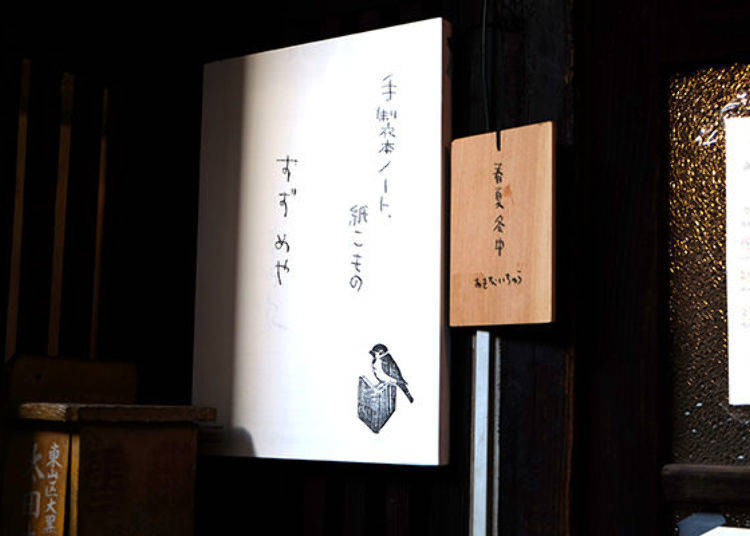 手製本ノート、
紙こもの
すずめや
春夏冬中
あきないちゅう
東山区大黒
太田